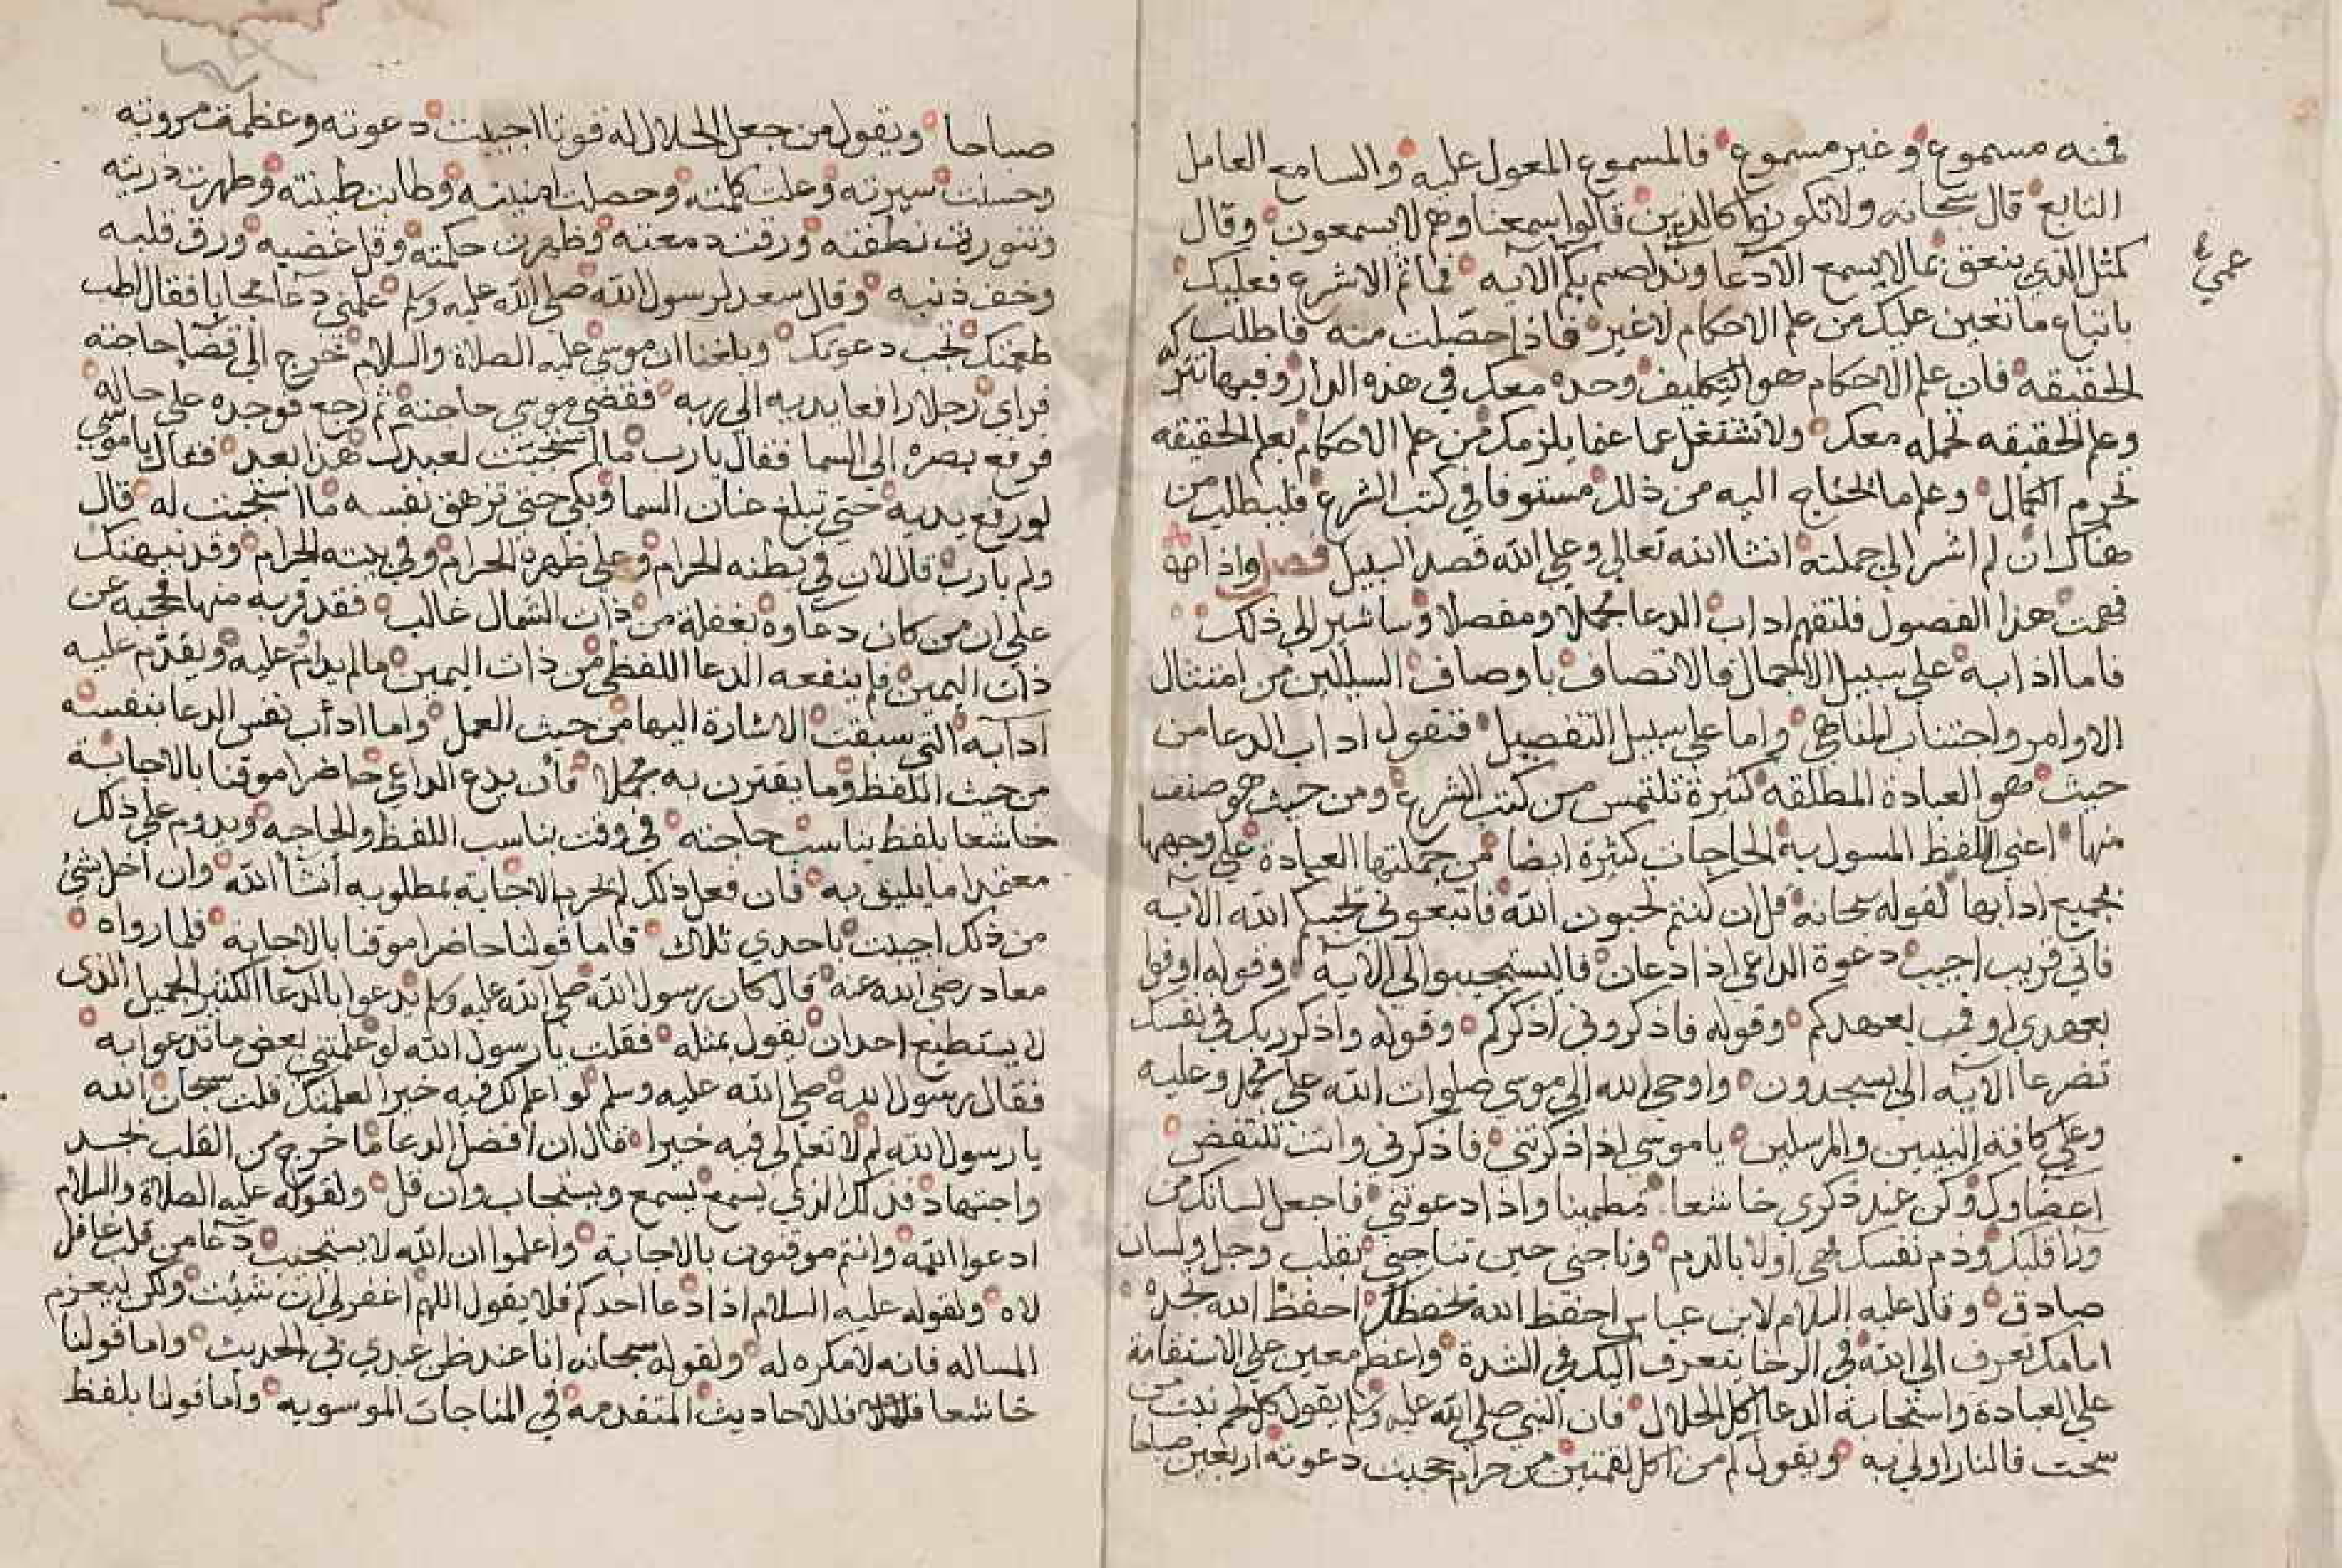 فمنه مسموع وغير مسموع فالمسموع المعول عليه والسامع العامل
التابع قال سبحانه ولا تكونوا كالذين قالوا سمعنا وهم لا يسمعون وقال
كمثل الذي ينعق بما لا يسمع الا دعا وندا صم بكم الآيه فما ثم الا شرع فعليك
عمي
باتباع ما تعين عليك من علم الاحكام لا غير فاذا حصلت منه فاطلب
الحقيقه فان علم الاحكام هو التكليف وحده معك في هذه الدار وفيها تتركه
وعلم الحقيقه تحمله معك ولا تشتغل عما يلزمك من علم الاحكام بعلم الحقيقه
تحرم الكمال وعلم ما تحتاج اليه من ذلك مستوفا في كتب الشرع فليطلب من
هناك ان لم اشر الى جملته انشا الله تعالى وعلى الله قصد السبيل فصل واذا
فهمت هذا الفصول فلتفهم اداب الدعا مجملا ومفصلا وساشير الى ذلك
فاما ادابه على سبيل الاجمال فالاتصاف باوصاف السايلين من امتثال
الاوامر واجتناب المناهي واما على سبيل التفصيل فنقول اداب الدعا من
حيث هو العبادة المطلقه كثيرة تلتمس من كتب الشرع ومن حيث هو صنف
منها اعني اللفظ المسول به الحاجات كثيرة ايضا فمن جملتها العبادة على وجهها
بجميع ادابها لقوله سبحانه قل ان كنتم تحبون الله فاتبعوني يحببكم الله الآيه
فاني قريب اجيب دعوة الداعي اذا دعان فاليستجيبوا لي الآية وقوله اوفوا
بعهدي اوف بعهدكم وقوله فاذكروني اذكركم وقوله واذكر ربك في نفسك
تضرعا الآية الى يسجدون واوحى الله الى موسى صلوات الله على محمد وعليه
وعلى كافة النبيين والمرسلين يا موسى اذا ذكرتني فاذكرني وانت تنتفض
اعضاوك وكن عند ذكري خاشعا مطمينا واذا دعوتني فاجعل لسانك من
ورا قلبك وذم نفسك فهي اولا بالذم وناجني حين تناجني بقلب وجل ولسان
صادق وقال عليه السلام لابن عباس احفظ الله يحفظك احفظ الله تجده
امامك تعرف الى الله في الرخا يتعرف اليك في الشدة واعظم معين على الاستقامة
على العبادة واستجابة الدعا اكل الحلال فان النبي صلى الله عليه وسلم يقول كل لحم نبت من
سحت فالنار اولى به ويقول من اكل لقمتين من حرام حجبت دعوته اربعين صباحا
صباحا ويقول من جعل الحلال له قوتا اجيبت دعوته وعظمت مروته
وحسنت سيرته وعلت كلمته وحصلت امنيته وطابت طينته وطهرت ذريته
وتنورت نطفته ورقت دمعته وظهرت حكمته وقل غضبه ورق قلبه
وخف ذنبه وقال سعد لرسول الله صلى الله عليه وسلم علمني دعآ مجابا فقال اطب
طعمتك تجب دعوتك وبلغنا ان موسى عليه الصلاة والسلام خرج الى قضآ حاجته
فراى رجلا رافعا يديه الى ربه فقضى موسى حاجته ثم رجع فوجده على حاله
فرفع بصره الى السما فقال يارب ما استجبت لعبدك هذا بعد فقال يا موسى
لو رفع يديه حتى تبلغ عنان السما وبكى حتى تزهق نفسه ما استجبت له قال
ولم يارب قال لان في بطنه الحرام وعلى ظهره الحرام وفي بيته الحرام وقد نبهتك
على ان من كان دعاوه بغفلة من ذات الشمال غالب فقد قربه منها محجبه عن
ذات اليمين فلم ينفعه الدعا اللفظي من ذات اليمين ما لم يداوم عليه ويقدم عليه
آدابه التي سبقت الاشارة اليها من حيث العمل واما ادآب نفس الدعا بنفسه
من حيث اللفظ وما يقترن به مجملا فان يدع الداعي حاضرا موقنا بالاجابة
خاشعا بلفظ يناسب حاجته في وقت يناسب اللفظ والحاجه ويدوم على ذلك
معتقدا ما يليق به فان فعل ذلك لم يحرم الاجابة بمطلوبه انشآ الله وان اخل بشئ
من ذلك اجيب باحدى ثلاث فاما قولنا حاضرا موقنا بالاجابة فلما رواه
معاد رضي الله عنه قال كان رسول الله صلى الله عليه وسلم يدعوا بالدعآ الكثير الجميل الذى
لا يستطيع احد ان يقول بمثله فقلت يا رسول الله لو علمتني بعض ما تدعوا به
فقال رسول الله صلى الله عليه وسلم لو اعلم لك فيه خيرا لعلمتك قلت سبحان الله
يا رسول الله لم لا تعلم لي فيه خيرا قال ان افضل الدعا ما خرج من القلب بجد
واجتهاد فذلك الذي يسمع يسمع ويستجاب وان قل ولقوله عليه الصلاة والسلام
ادعوا الله وانتم موقنون بالاجابة واعلموا ان الله لا يستجيب دعآ من قلب غافل
لاه ولقوله عليه السلام اذا دعا احدكم فلا يقول اللهم اغفر لي ان شيئت ولكن ليعزم
المساله فانه لا مكره له ولقوله سبحانه انا عند ظن عبدي بي الحديث واما قولنا
خاشعا فللاحاديث المتقدمة في المناجات الموسويه واما قولنا بلفظ